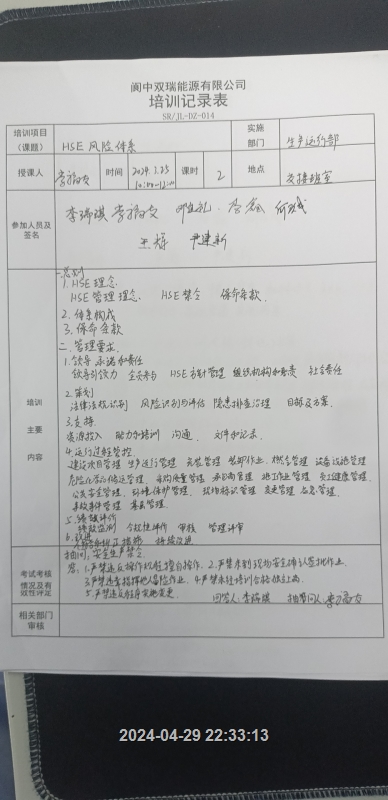 阆中双瑞能源有限公司
培训记录表
SR/JL-DZ-014
培训项目（课题） HSE 风险体系 实施部门 生产运行部
授课人 时间 2024.1.25 10:00-12:00 课时 2 地点 交接班室
参加人员及签名 李瑞琪
王栎 尹建新
培训主要内容
一.总则
1. HSE 理念
HSE 管理理念、 HSE 禁令 保命条款.
2. 体系构成
3. 保命条款
二. 管理要求
1. 领导承诺和责任
领导引领力 全员参与 HSE方针管理 组织机构和职责 社会责任
2. 策划
法律法规识别 风险识别与评估 隐患排查治理 目标及方案.
3. 支持.
资源投入 能力和培训 沟通. 文件和记录.
4. 运行过程管控
建设项目管理 生产运行管理 设备设施管理
危险化学品储运管理 承包商管理 施工作业管理 员工健康管理
公共安全管理. 环境保护管理 现场标识管理 变更管理 应急管理.
事故事件管理 基层管理.
5. 绩效评价
绩效监测 合规性评价 审核 管理评审
6. 改进
不符合和纠正措施 持续改进
考试考核情况及有效性评定
提问: 安全生产禁令
答: 1.严禁违反操作规程擅自操作. 2.严禁未到现场安全确认签批作业.
3.严禁违章指挥他人冒险作业. 4.严禁未经培训合格独立上岗.
5.严禁违反程序实施变更. 回答人: 李瑞琪 提问人:
相关部门审核
2024-04-29 22:33:13